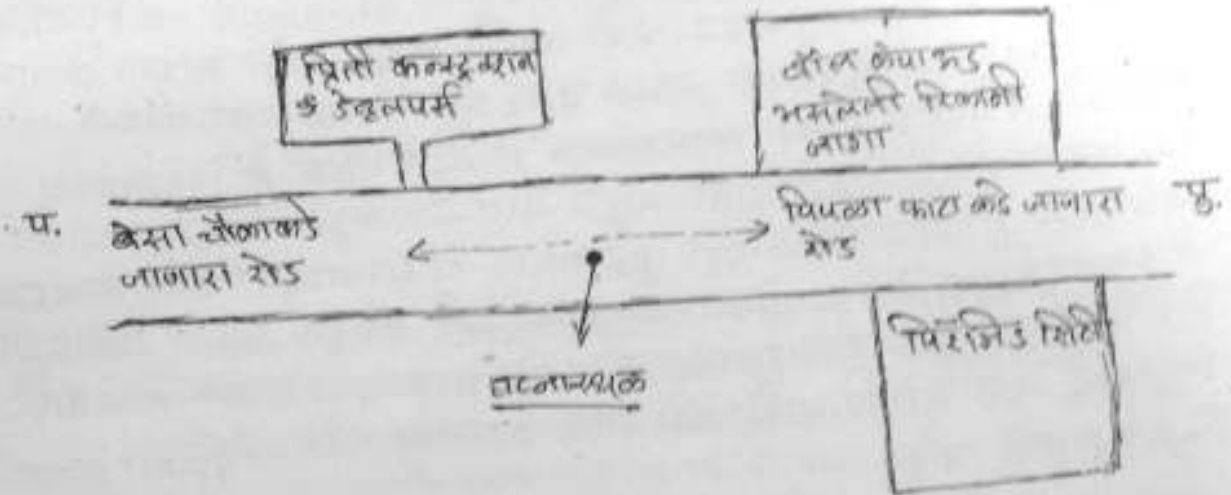 प्रिती कन्स्ट्रक्शन
& डेव्हलपर्स
असलेली रिकामी
जागा
प.
बेसा चौकाकडे
जाणारा रोड
पिपळा फाटा कडे जाणारा
रोड
पु.
पिरॅमिड सिटी
घटनास्थळ